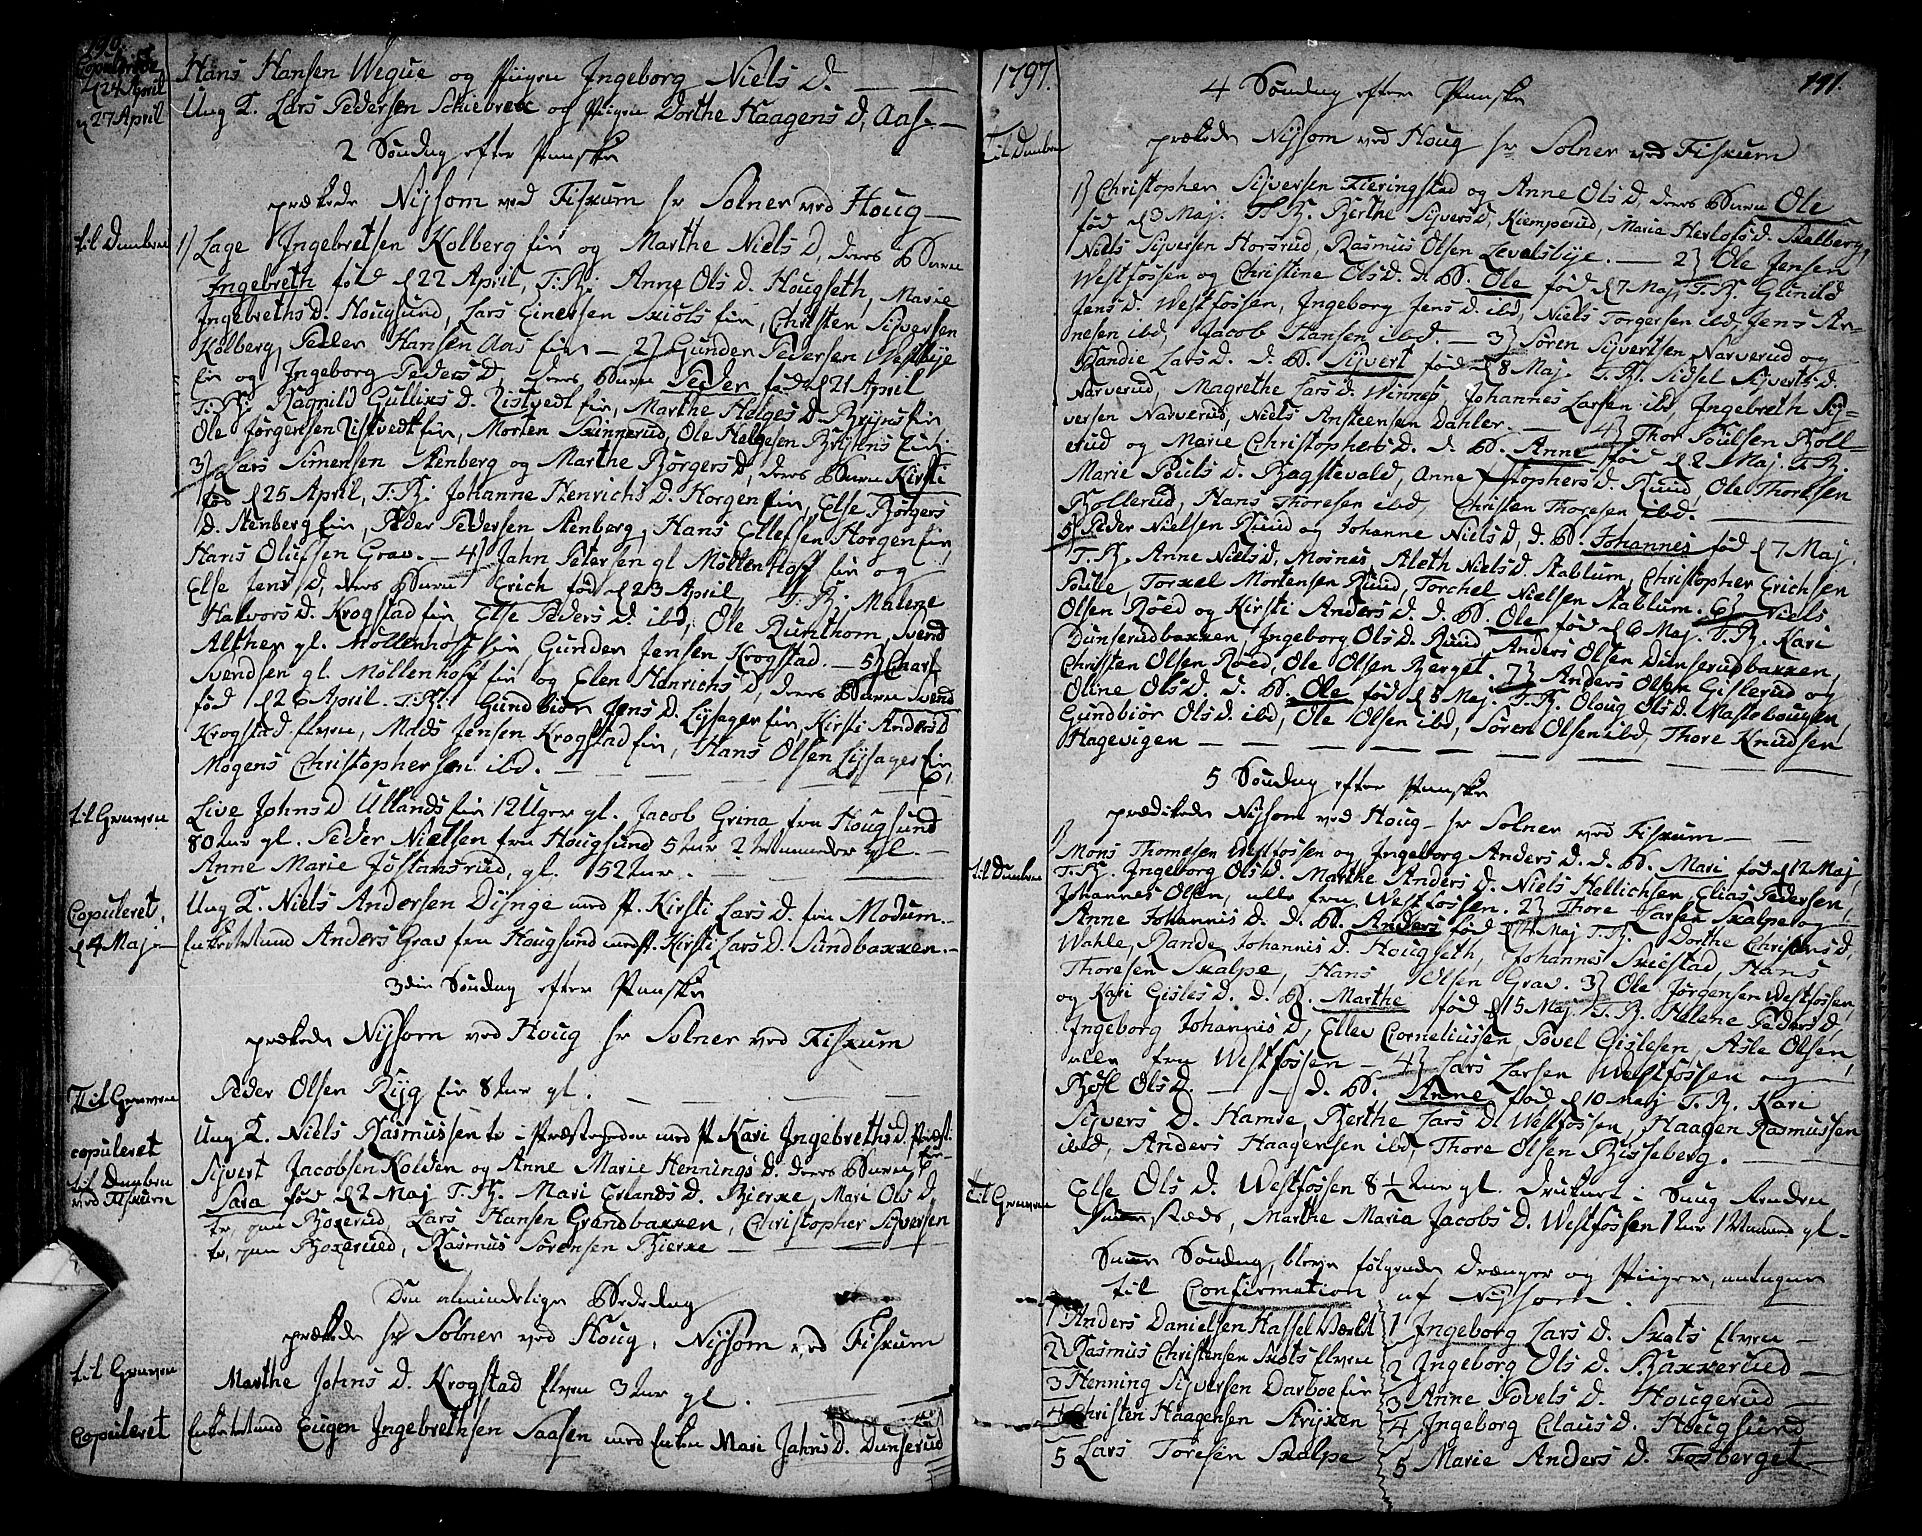 190.
Copulerede
d 24 April
Hans Hansen Wegue og Piigen Ingeborg Niels D.
d 27 April
Ung K. Lars Pedersen Schiebrek og Piigen Dorthe Haagens D, Aas
2 Søndag efter Paaske
prækede Nyssom ved Fiskum hr Solner ved Houg
til Daaben
1) Lage Ingebretsen Kolberg Eir og Marthe Niels D, deres Barn
Ingebreth fød d 22 April, T. B. Anne Ols D. Hougseth, Marie
Ingebreths D. Hougsund, Lars Einersen Skiols Eir, Christen Syversen
Kolberg, Peder Hansen Aas Eir — 2) Gunder Pedersen Westbye
Eir og Ingeborg Peders D. deres Barn Peder fød d 21 April
T. B. Ragnild Gulliks D. Ristvedt Eir, Marthe Helges D. Bryns Eir
Ole Jørgensen Ristvedt Eir, Morten Skinnerud, Ole Helgesen Bryns Eir,
3) Lars Simensen Stenberg og Marthe Børgers D, deres Barn Kirsti
fød d 25 April, T. B. Johanne Henrichs D. Horgen Eir, Else Børgers
D. Stenberg Eir, Peder Pedersen Stenberg, Hans Ellefsen Horgen Eir
Hans Olufsen Grav. — 4) Jahn Petersen gl Möllenhoff Eir og
Else Jens D, deres Barn Erich fød d 23 April, T. B. Malene
Halvors D. Krogstad Eir, Else Peders D. ibd, Ole Runthom, Svend
Alther gl. Möllenhoff Eir Gunder Jensen Krogstad. — 5) Charl
Svendsen gl Möllenhoff Eir og Elen Hanrichs D, deres Barn Svend
fød d 26 April. T. B. Gundbiör Jens D. Lysager Eir, Kirsti Anders D
Krogstad Elven, Mads Jensen Krogstad Eir, Hans Olsen Lysager Eir,
Mogens Christophersen ibd.
til Graven
Live Johns D Ullands Eir 12 Uger gl. Jacob Grina fra Hougsund
80 Aar gl. Peder Nielsen fra Hougsund 5 Aar 2 Maaneder gl.
Anne Marie Jostamsrud, gl. 52 Aar.
Copuleret,
Ung K. Niels Andersen Dynge med P. Kirsti Lars D. fra Modum.
d 4 Maj
Enkemand Anders Grav fra Hougsund med P. Kirsti Lars D. Sundbakken.
3die Søndag efter Paaske
prækede Nyssom ved Houg hr Solner ved Fiskum
Til Graven
Peder Olsen Ryg Eir 8 Aar gl.
copuleret
Ung K. Niels Rasmussen tr i Præstegaarden med P. Kari Ingebreths D. Præst-
til Daaben
ved Fiskum
Syvert Jacobsen Kolden og Anne Marie Hennings D. deres Barn
Sara fød d 2 Maj T. B. Mari Erlands D. Bierke, Mari Ols D.
tr, paa Bøkerud, Lars Hansen Grandbakken, Christopher Syversen
tr, paa Bøkerud, Rasmus Sørensen Bierke
Den almindelige Bededag
prækede hr Solner ved Houg, Nyssom ved Fiskum
til Graven
Marthe Johns D. Krogstad Elven 3 Aar gl.
Copuleret
Enkemand Eugen Ingebrethsen Saasen med Enken Mari Jahns D. Dunserud
1797.
191.
4 Søndag efter Paaske
prækede Nyssom ved Houg hr Solner ved Fiskum
til Daaben
1) Christopher Syversen Fieringstad og Anne Ols D, deres Barn Ole
fød d 3 Maj. T. B. Berthe Syvers D, Kiemperud, Maria Herlofs D. Kalberg,
Niels Syversen Horsrud, Rasmus Olsen Levelsbye. — 2) Ole Jensen
Westfossen og Christine Ols D. D. B. Ole fød d 7 Maj T. B. Gunild
Jens D. Westfossen, Ingeborg Jens D. ibd, Niels Torgersen ibd, Jens Ar-
nesen ibd, Jacob Hansen ibd. — 3) Sören Syvertsen Narverud og
Randie Lars D. D. B. Syvert fød d 8 Maj. T. B. Sidsel Syverts D.
Narverud, Magrethe Lars D. Winnes, Johannes Larsen ibd, Ingebreth Sy-
versen Narverud, Niels Ansteensen Dahler. — 4) Thor Poulsen Boll-
erud og Marie Christophers D. D. B. Anne fød d 2 Maj. T. B.
Marie Pouls D. Bagstevald, Anne Christophers D. Ruud, Ole Thoresen
Bollerud, Hans Thoresen ibd, Christen Thoresen ibd.
5) Peder Nielsen Ruud og Johanne Niels D, D. B. Johannes fød d 7 Maj.
T. B. Anne Niels D, Mosnes, Aleth Niels D. Stablum, Christopher Erichsen
Poulle, Torkel Mortensen Ruud, Torchel Nielsen Stablum. 6) Niels
Olsen Roed og Kirsti Anders D. D. B. Ole fød d 6 Maj. T. B. Kari
Dunserudbakken, Ingeborg Ols D. Ruud, Anders Olsen Dunserudbakken,
Christen Olsen Roed, Ole Olsen Berget. 7) Anders Olsen Gislerud og
Oline Ols D. D. B. Ole fød d 8 Maj. T. B. Oloug Ols D. Mastebougen,
Gundbiör Ols D. ibd, Ole Olsen ibd, Sören Olsen ibd, Thore Knudsen
Hagevigen
5 Søndag efter Paaske
prædikede Nyssom ved Houg — hr Solner ved Fiskum —
til Daaben
1)
Mons Thomesen Westfossen og Ingeborg Anders D. D. B. Mari fød d 12 Maj,
T. B. Ingeborg Ols D. Marthe Anders D. Niels Hellichsen, Elias Pedersen,
Johannes Olsen, alle fra Westfossen. 2) Thore Larsen Skalpe og
Anne Johannis D. D. B. Anders fød d 14 Maj T. B. Dorthe Christens D,
Wahle, Rande Johannis D. Hougseth, Johannes Skiestad, Hans
Thoresen Skalpe, Hans Olsen Grav. 3) Ole Jörgensen Westfossen,
og Kari Gisles D. D. B. Marthe fød d 15 Maj T. B. Helene Peders D,
Ingeborg Johannis D, Ellev Corneliussen Povel Gislesen, Asle Olsen,
alle fra Westfossen — 4) Lars Larsen Westfossen og
Bøel Ols D. — D. B. Anne fød d 10 Maj T. B. Kari
Syvers D. Hamre, Berthe Lars D. Westfossen, Haagen Rasmussen
ibd, Anders Haagensen ibd, Thore Olsen Bisseberg.
til Graven
Else Ols D. Westfossen 8½ Aar gl. druknet i Saug Renden
sammesteds, Marthe Maria Jacobs D. Westfossen 1 Aar 1 Maaned gl.
Samme Søndag, bleve følgende Drænger og Piiger, antagne
til Confirmation af Nyssom.
1 Anders Danielsen Hassel Værket
2 Rasmus Christensen Skots Elven
3 Henning Syversen Darboe Eir
4 Christen Haagensen Stryken
5 Lars Toresen Skalpe
1 Ingeborg Lars D. Skots Elven
2 Ingeborg Ols D. Bakkerud
3 Anne Povels D. Hougerud
4 Ingeborg Claus D. Hougsund
5 Marie Anders D. Fosberget